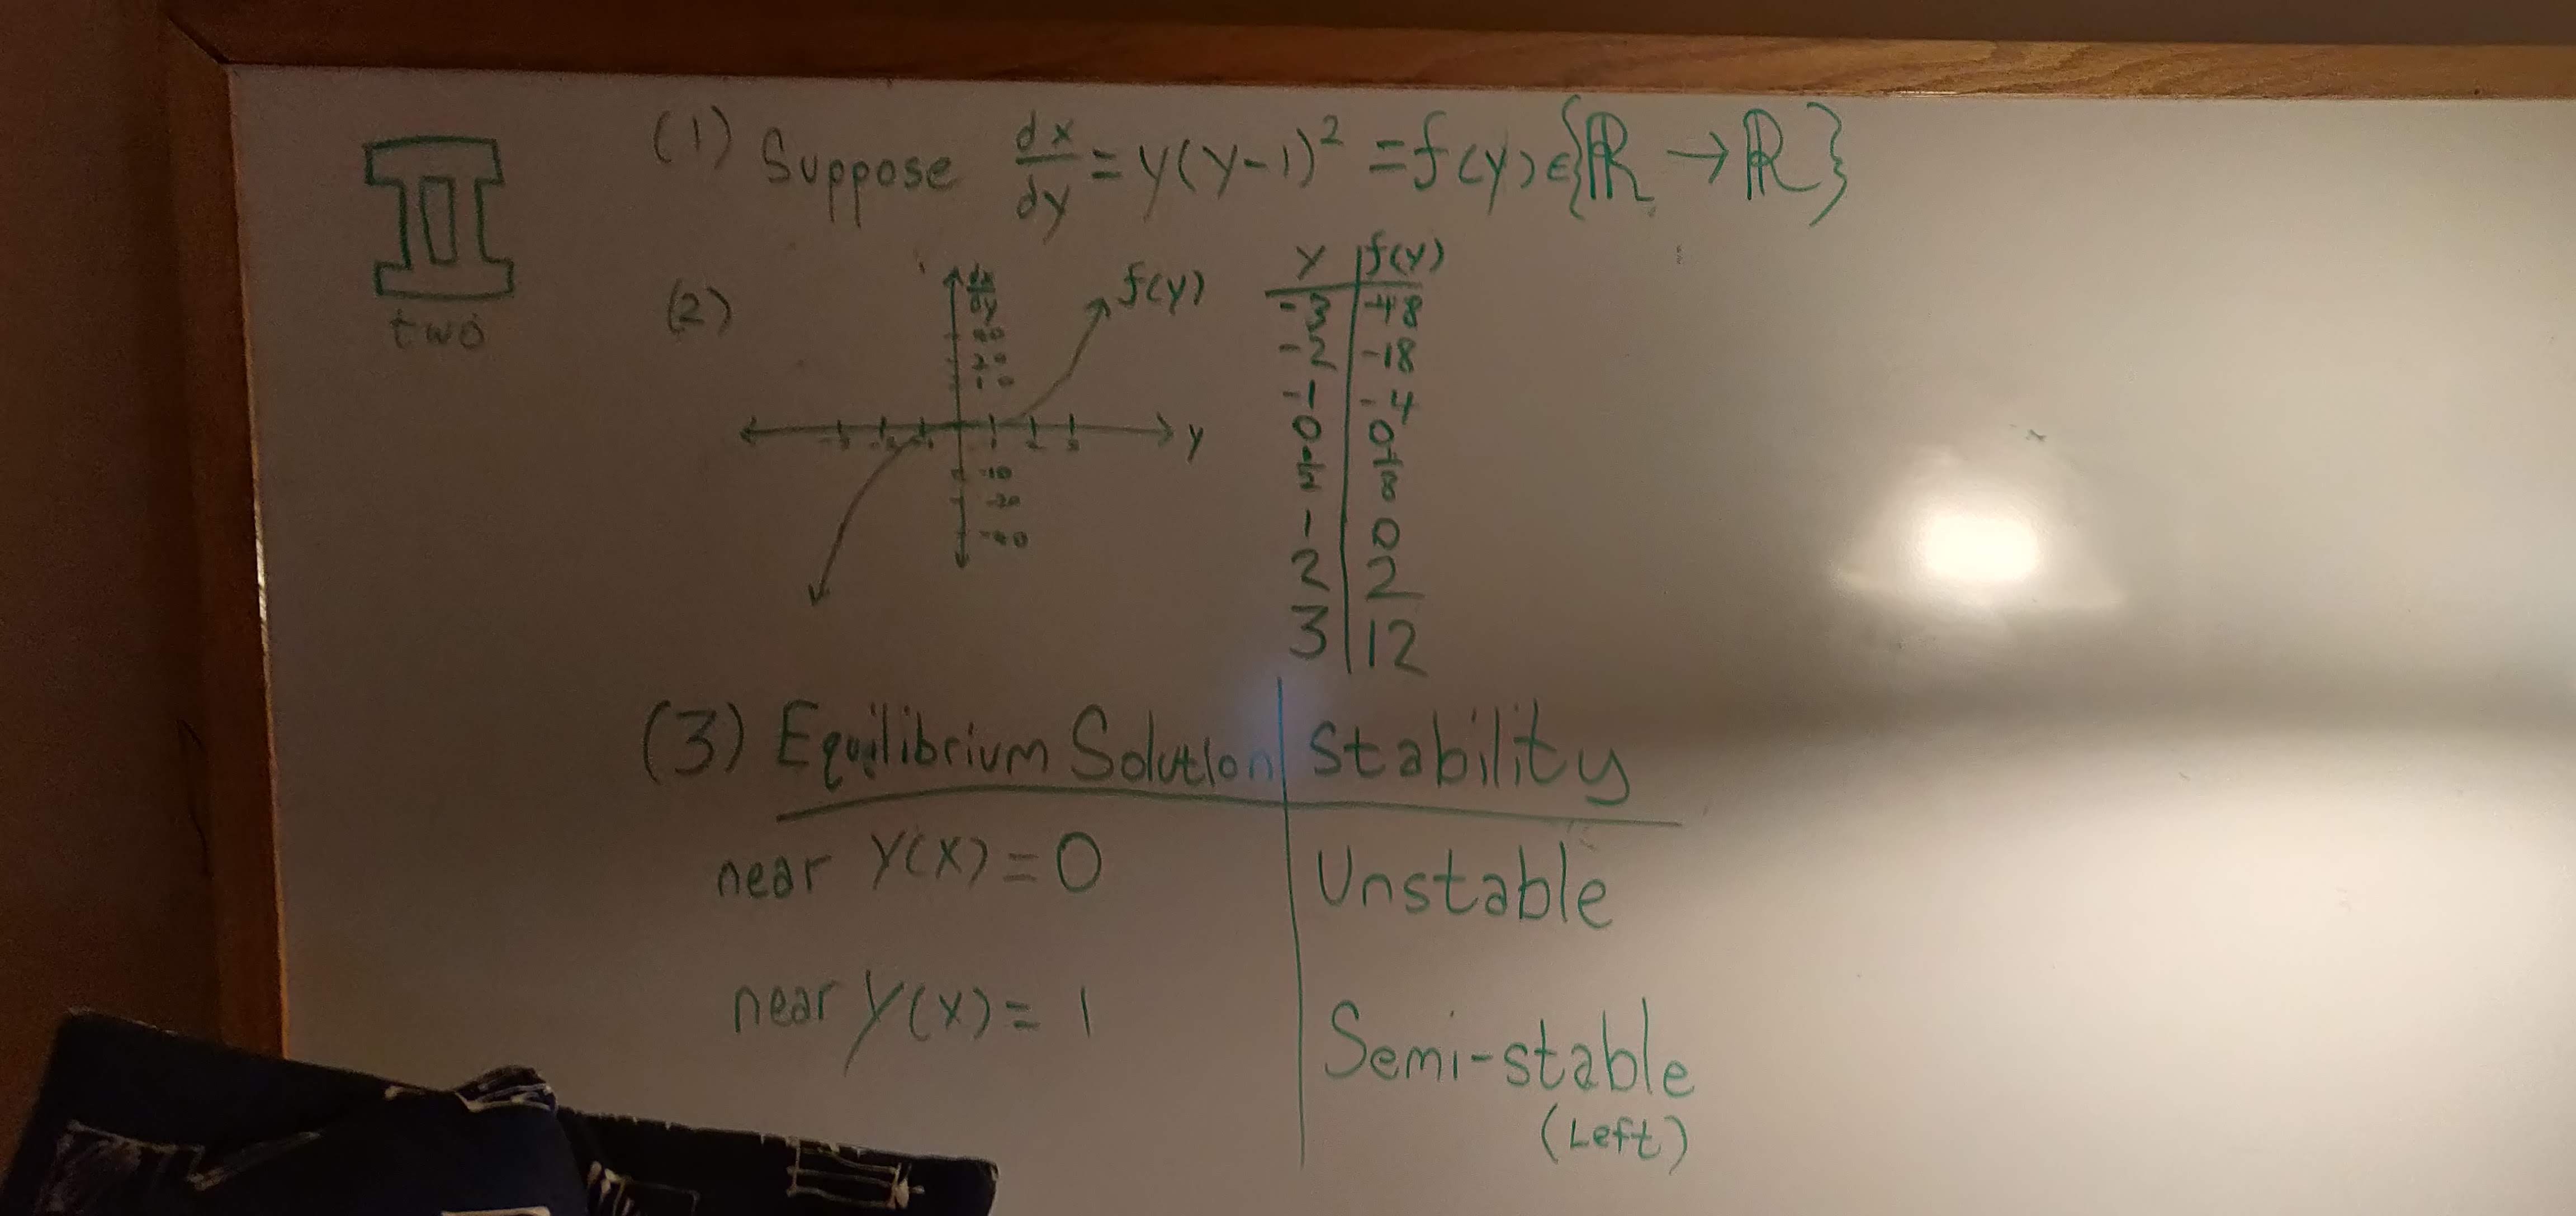 II
two
(1) Suppose dx/dy = y(y-1)² = f(y) ∈ {ℝ → ℝ}
(2)
dx/dy
f(y)
40
20
10
-3 -2 -1 1 2 3 y
-10
-20
-40
y | f(y)
-3 | -48
-2 | -18
-1 | -4
0 | 0
1/2 | 1/8
1 | 0
2 | 2
3 | 12
(3) Equilibrium Solution | Stability
near y(x) = 0 | Unstable
near y(x) = 1 | Semi-stable
(Left)